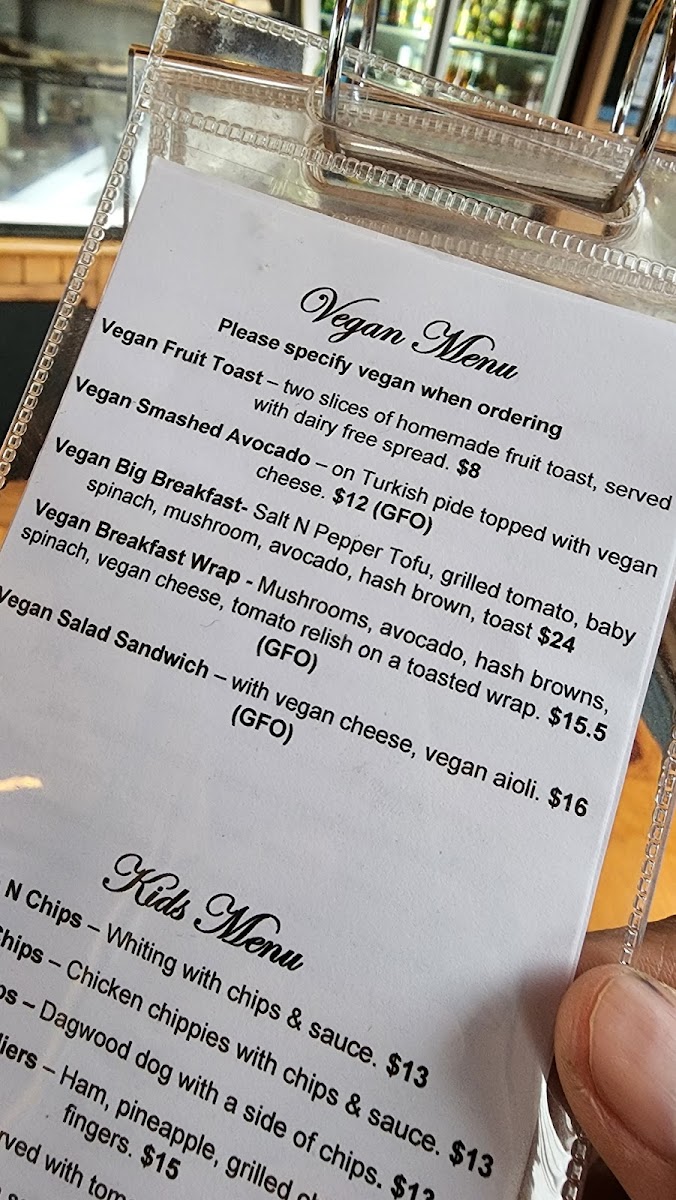 Vegan Menu
Please specify vegan when ordering
Vegan Fruit Toast – two slices of homemade fruit toast, served
with dairy free spread. $8
Vegan Smashed Avocado – on Turkish pide topped with vegan
cheese. $12 (GFO)
Vegan Big Breakfast- Salt N Pepper Tofu, grilled tomato, baby
spinach, mushroom, avocado, hash brown, toast $24
Vegan Breakfast Wrap - Mushrooms, avocado, hash browns,
spinach, vegan cheese, tomato relish on a toasted wrap. $15.5
(GFO)
Vegan Salad Sandwich – with vegan cheese, vegan aioli. $16
(GFO)
Kids Menu
N Chips – Whiting with chips & sauce. $13
– Chicken chippies with chips & sauce. $13
– Dagwood dog with a side of chips. $13
– Ham, pineapple, grilled
fingers. $15
with